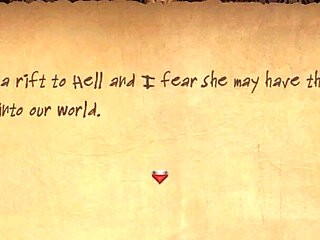 a rift to Hell and I fear she may have th
into our world.